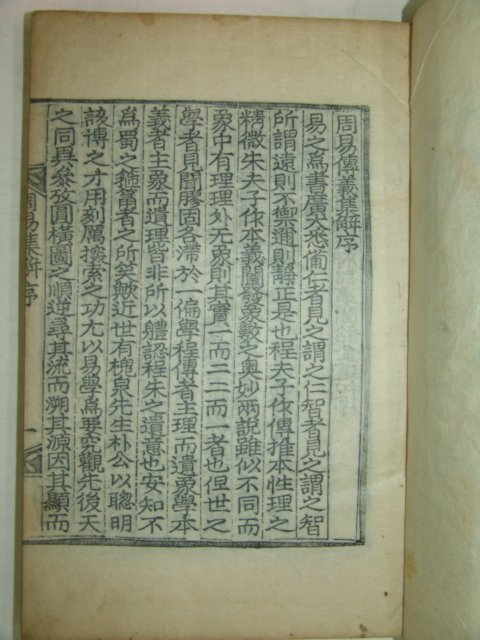 周易傳義集解序
易之爲書廣大悉備仁者見之謂之仁智者見之謂之智
所謂遠則不禦邇則靜正是也程夫子作傳推本性理之
精微朱夫子作本義闡發象數之奧妙兩說雖似不同而
象中有理理外无象則其實一而二二而一者也但世之
學者見聞膠固各滯於一偏學程傳者主理而遺象學本
義者主象而遺理皆非所以體認程朱之遺意也安知不
爲蜀之箍篅者之所笑歟近世有槐泉先生朴公以聰明
該博之才用刻厲探索之功尤以易學爲要究觀先後天
之同異參放圓橫圖之順逆尋其流而溯其源因其顯而
周易集解序
一